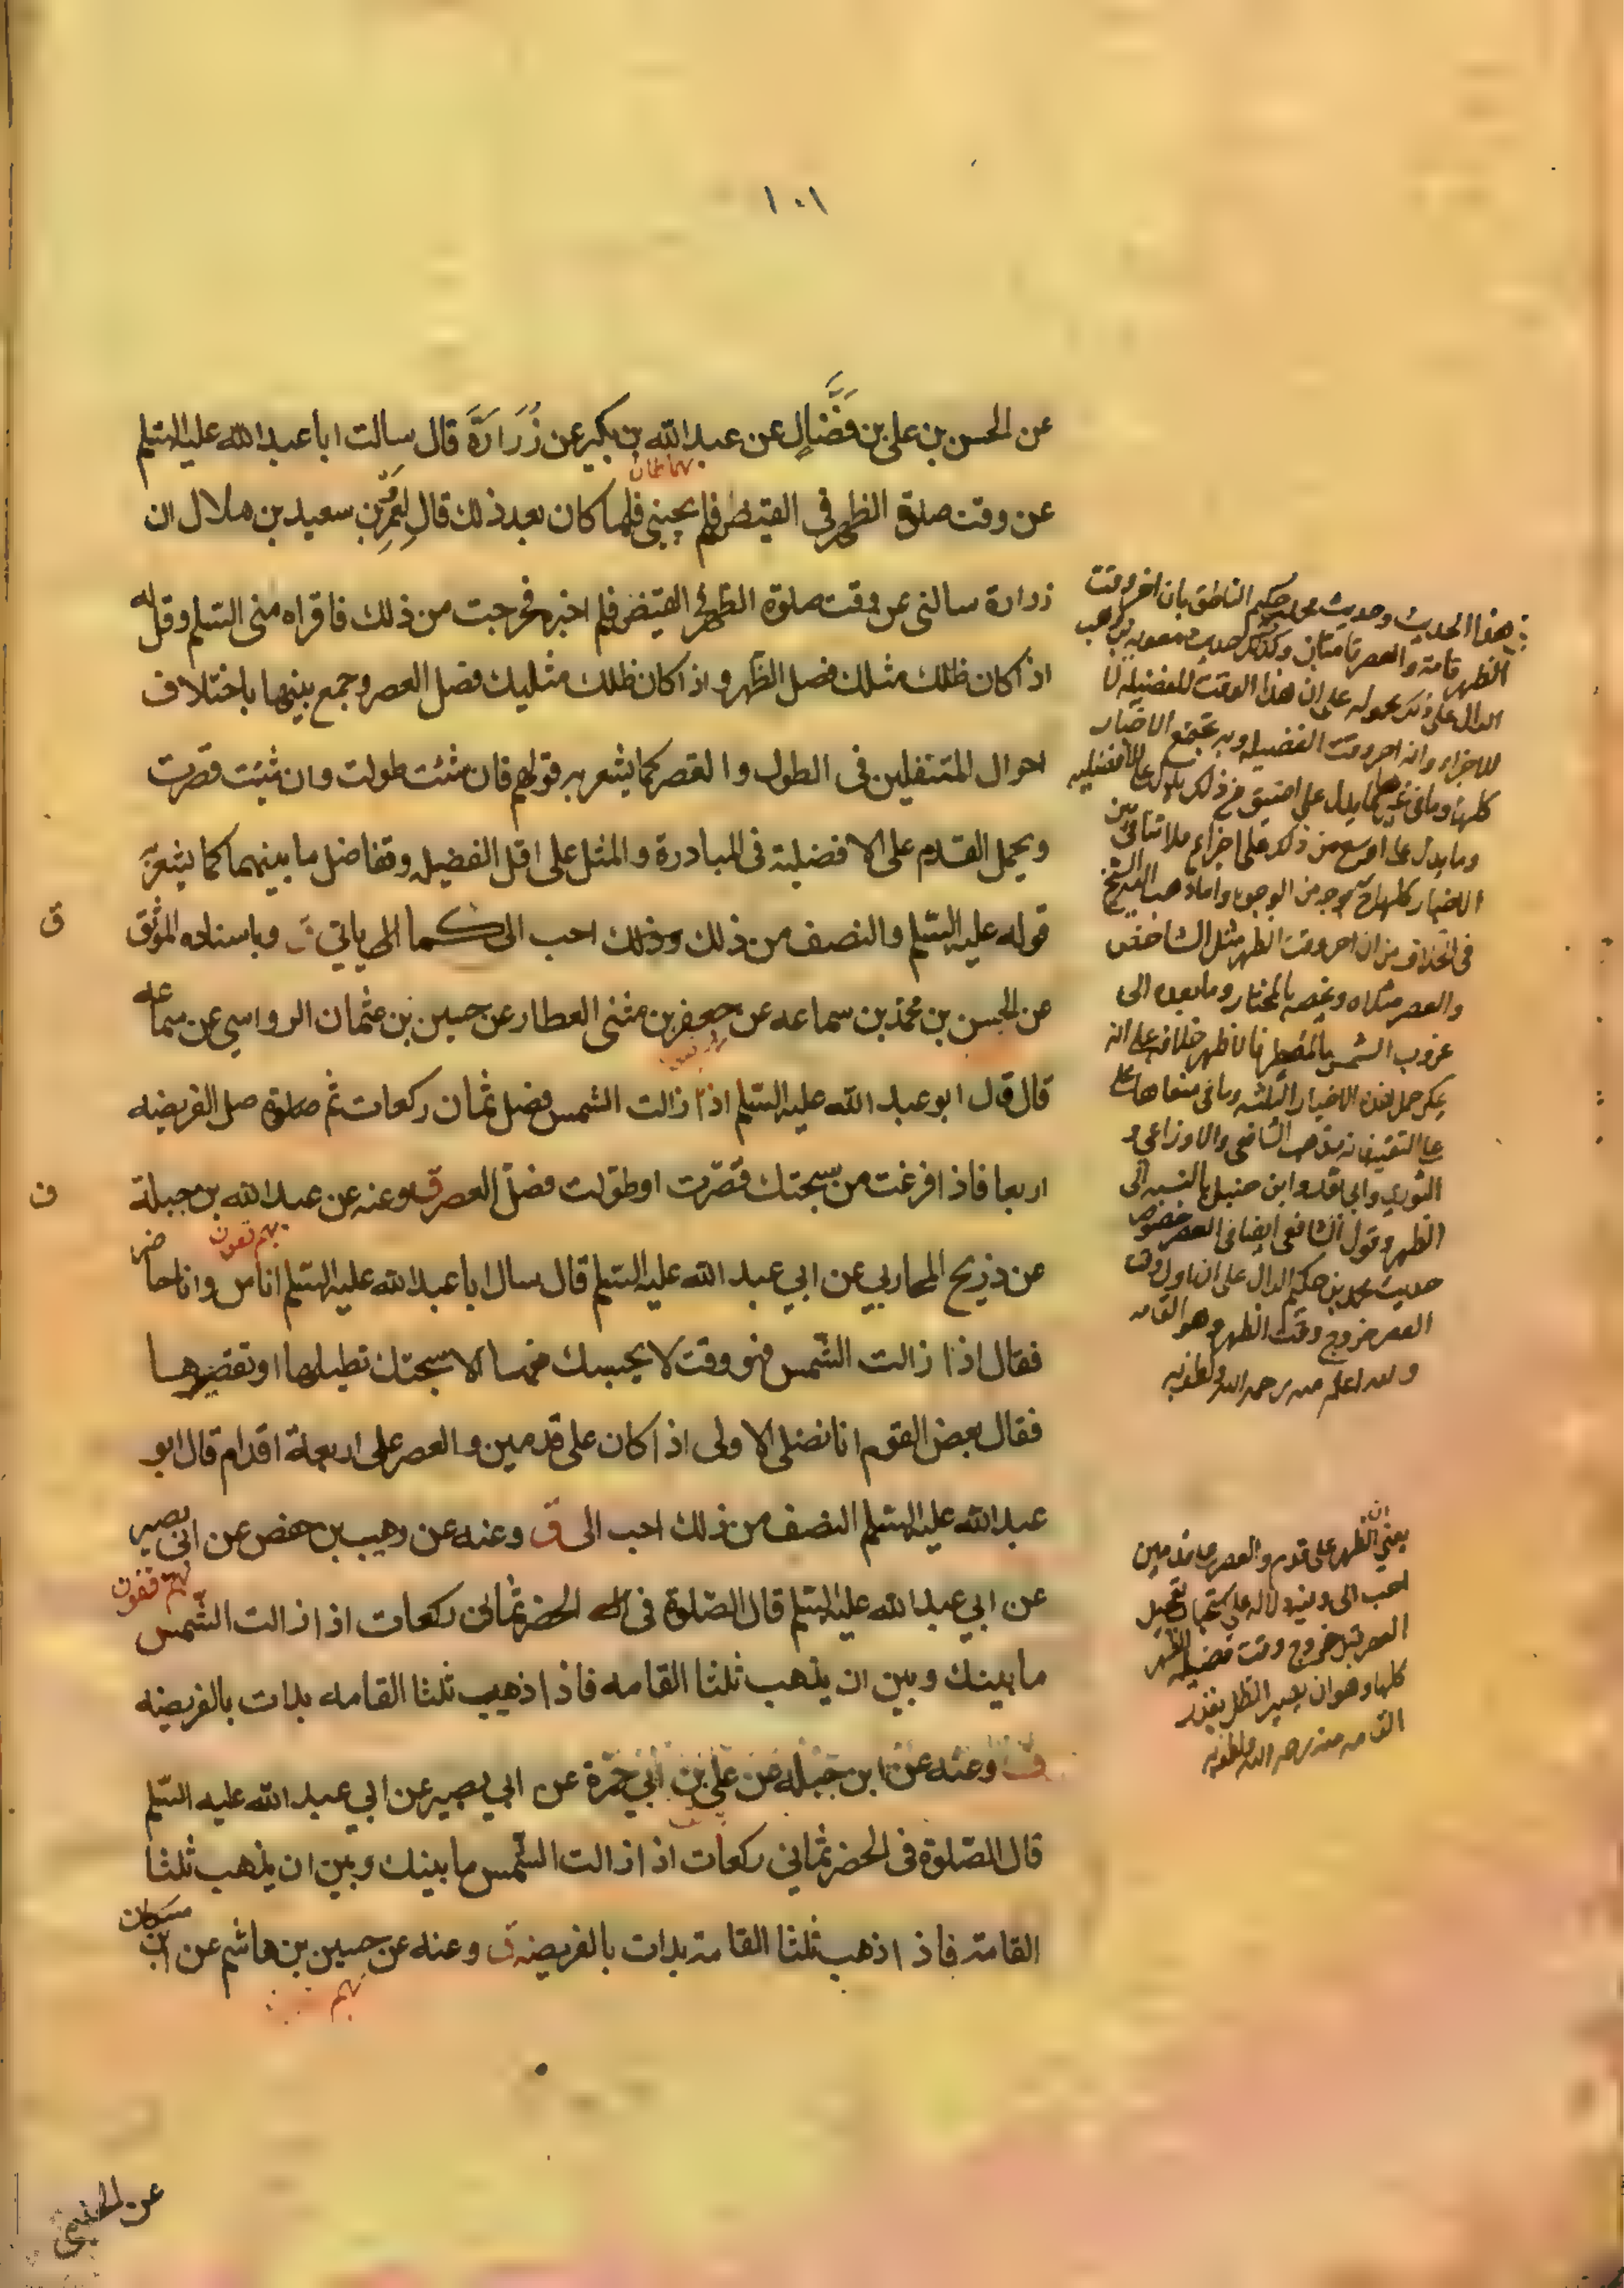 ١٠١
عن الحسن بن علي بن فَضَّالٍ عن عبد الله بن بكير عن زُرَارَةَ قال سالت ابا عبد الله عليه السلم
عن وقت صلوة الظهر في القيض فلم يجبني فلما كان بعد ذلك قال لِعُمَر بن سعيد بن هلال ان
زرارة سالني عن وقت صلوة الظهر في القيض فلم اخبره فخرجت من ذلك فاقراه مني السلم وقل له
اذا كان ظلك مثلك فصل الظهر و اذا كان ظلك مثليك فصل العصر و جمع بينها باختلاف
احوال المتنفلين في الطول و القصر كما يشعر به قولهم فان شئت طولت وان شئت قصرت
ويحمل القدم على الافضلية في المبادرة و المثل على اقل الفضيله وتفاضل ما بينهما كما يشعر به
قوله عليه السلم والنصف من ذلك احب الى كما ياتي ق وباسناده الموثق
ق
عن الحسن بن محمد بن سماعه عن جعفر بن مثنى العطار عن حسين بن عثمان الرواسي عن سماعه
قال قال ابو عبد الله عليه السلم اذا زالت الشمس فصل ثمان ركعات ثم صل الفريضه
اربعا فاذا فرغت من سبحتك قصّرت او طوّلت فصلّ العصر ق وعنه عن عبد الله بن جبلة
ف
عن ذريح المحاربي عن ابي عبد الله عليه السلم قال سال ابا عبد الله عليه السلم اناس وانا حاضر
فقال اذا زالت الشّمس فهو وقت لا يحبسك منها الا سبحتك تطيلها او تقصرها
فقال بعض القوم انا نصلى الاولى اذا كان على قدمين و العصر على اربعة اقدام قال ابو
عبد الله عليه السلم النصف من ذلك احب الى ق وعنه عن وهيب بن حفص عن ابي بصير
عن ابي عبد الله عليه السلم قال الصّلوة في الحضر ثماني ركعات اذا زالت الشّمس
ما بينك وبين ان يذهب ثلثا القامه فاذا ذهب ثلثا القامه بدات بالفريضه
ف وعنه عن ابن جبله عن علي بن ابي حمزة عن ابي بصير عن ابي عبد الله عليه السّلم
قال الصّلوة في الحضر ثماني ركعات اذا زالت الشّمس ما بينك وبين ان يذهب ثلثا
القامة فاذا ذهب ثلثا القامة بدات بالفريضة ق وعنه عن حسين بن هاشم عن ابن مسكان
هذا الحديث وحديث محمد بن حكيم الناطق بان اخر وقت
الظهر قامة والعصر قامتان وكذلك حديث معويه بن وهب
الدال على ذلك محموله على ان هذا الوقت للفضيله لا
للاجزاء وانه اخر وقت الفضيله وبه تجتمع الاخبار
كلها وما في غيرها مما يدل على اضيق من ذلك يدل على الافضليه
وما يدل على اوسع من ذلك على اجزاء فلا تنافي بين
الاخبار كلها بوجه من الوجوه واما ذهب اليه الشيخ
في الخلاف من ان اخر وقت الظهر مثل الشاخص
والعصر مثلاه ويخصه بالمختار وما بعده الى
غروب الشمس بالمضطر فالاظهر خلافه على انه
يمكن حمل هذه الاخبار الثلثه وما في معناها على
على التقيه فانه مذهب الشافعي والاوزاعي و
الثوري وابن حنبل بالنسبه الى
الظهر وقول الشافعي ايضا في العصر خصوص
حديث محمد بن حكيم الدال على ان اول وقت
العصر خروج وقت الظهر وهو القامه
والله اعلم منه رحمه الله
يعني ان الظهر على قدم والعصر على قدمين
احب الى وفيه دلاله على استحباب تعجيل
العصر قبل خروج وقت فضيله الظهر
كلها وهو ان يصير الظل بقدر
القامه منه رحمه الله